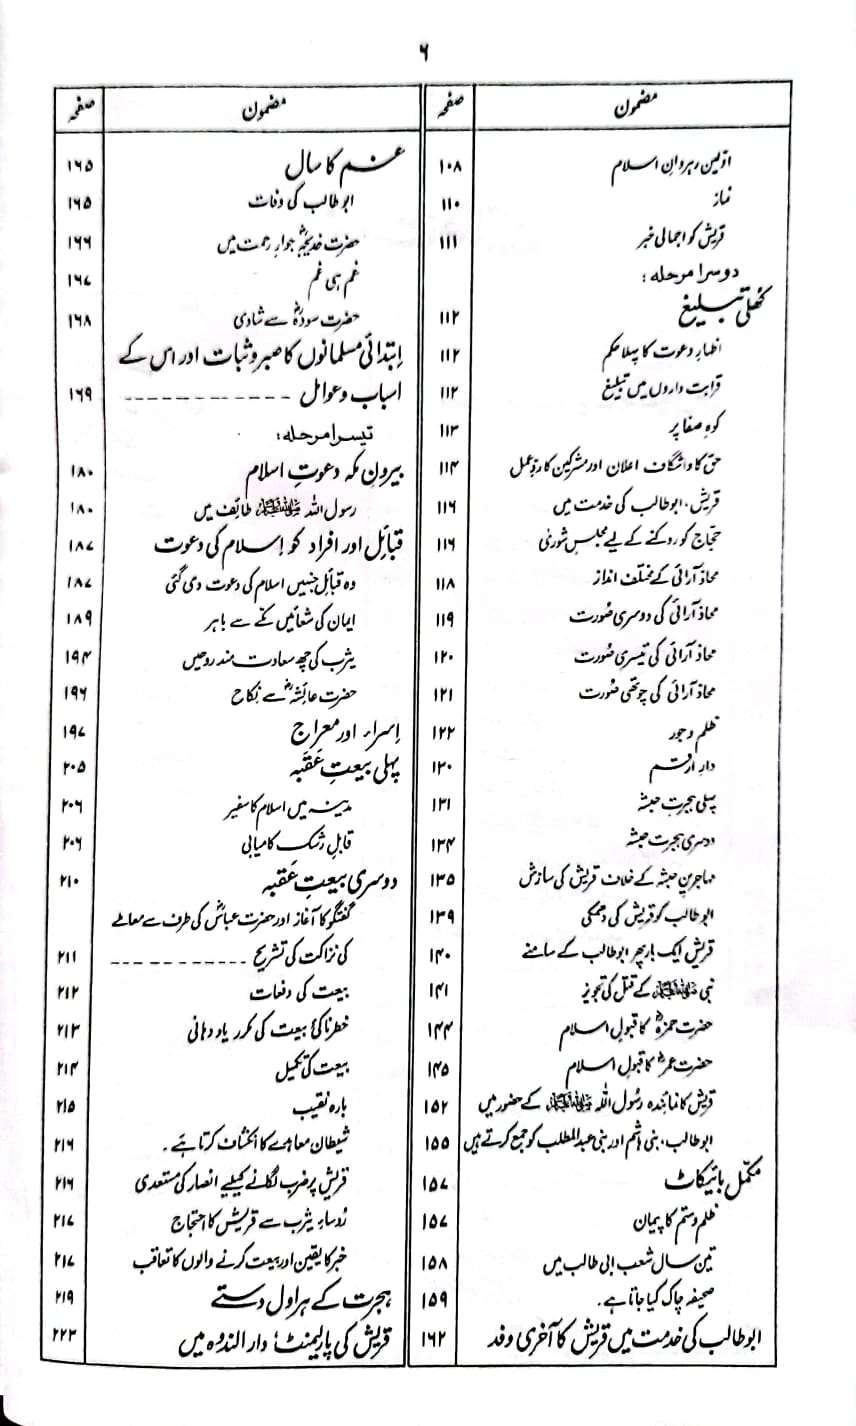 ۶
مضمون صفحہ
اوّلین رہروانِ اسلام ۱۰۸
نماز ۱۱۰
قریش کو اجمالی خبر ۱۱۱
دوسرا مرحلہ:
کھُلی تبلیغ ۱۱۲
اظہارِ دعوت کا پہلا حکم ۱۱۲
قرابت داروں میں تبلیغ ۱۱۲
کوہِ صفا پر ۱۱۳
حق کا واشگاف اعلان اور مشرکین کا ردِّعمل ۱۱۴
قریش، ابوطالب کی خدمت میں ۱۱۶
حجاج کو روکنے کے لیے مجلسِ شوریٰ ۱۱۶
محاذ آرائی کے مختلف انداز ۱۱۸
محاذ آرائی کی دوسری صُورت ۱۱۹
محاذ آرائی کی تیسری صُورت ۱۲۰
محاذ آرائی کی چوتھی صُورت ۱۲۱
ظلم و جور ۱۲۲
دارِ ارقم ۱۳۰
پہلی ہجرتِ حبشہ ۱۳۱
دوسری ہجرت حبشہ ۱۳۴
مہاجرینِ حبشہ کے خلاف قریش کی سازش ۱۳۵
ابوطالب کو قریش کی دھمکی ۱۳۹
قریش ایک بار پھر ابوطالب کے سامنے ۱۴۰
نبی ﷺ کے قتل کی تجویز ۱۴۱
حضرت حمزہؓ کا قبولِ اسلام ۱۴۴
حضرت عمرؓ کا قبولِ اسلام ۱۴۵
قریش کا نمائندہ رسُول اللہ ﷺ کے حضور میں ۱۵۲
ابوطالب، بنی ہاشم اور بنی عبدالمطلب کو جمع کرتے ہیں ۱۵۵
مکمّل بائیکاٹ ۱۵۷
ظلم و ستم کا پیمان ۱۵۷
تین سال شعب ابی طالب میں ۱۵۸
صحیفہ چاک کیا جاتا ہے۔ ۱۵۹
ابوطالب کی خدمت میں قریش کا آخری وفد ۱۶۲
مضمون صفحہ
غم کا سال ۱۶۵
ابوطالب کی وفات ۱۶۵
حضرت خدیجہؓ جوارِ رحمت میں ۱۶۶
غم ہی غم ۱۶۷
حضرت سودہؓ سے شادی ۱۶۸
اِبتدائی مسلمانوں کا صبر و ثبات اور اس کے
اسباب و عوامل ۱۶۹
تیسرا مرحلہ:
بیرونِ مکّہ دعوتِ اسلام ۱۸۰
رسول اللہ ﷺ طائف میں ۱۸۰
قبائل اور افراد کو اِسلام کی دعوت ۱۸۷
وہ قبائل جنہیں اسلام کی دعوت دی گئی ۱۸۷
ایمان کی شعائیں مکّے سے باہر ۱۸۹
یثرب کی چھ سعادت مند روحیں ۱۹۴
حضرت عائشہؓ سے نکاح ۱۹۶
اِسراء اور معراج ۱۹۷
پہلی بیعتِ عَقَبہ ۲۰۵
مدینہ میں اسلام کا سفیر ۲۰۶
قابلِ رشک کامیابی ۲۰۶
دوسری بیعتِ عَقبہ ۲۱۰
گفتگو کا آغاز اور حضرت عباسؓ کی طرف سے معاملے
کی نزاکت کی تشریح ۲۱۱
بیعت کی دفعات ۲۱۲
خطرناکیٔ بیعت کی مکرر یاد دہانی ۲۱۳
بیعت کی تکمیل ۲۱۴
بارہ نقیب ۲۱۵
شیطان معاہدے کا انکشاف کرتا ہے۔ ۲۱۶
قریش پر ضرب لگانے کیلیے انصار کی مستعدی ۲۱۶
رُوساءِ یثرب سے قریش کا احتجاج ۲۱۷
خبر کا یقین اور بیعت کرنے والوں کا تعاقب ۲۱۷
ہجرت کے ہراول دستے ۲۱۹
قریش کی پارلیمنٹ؛ دار النّدوہ میں ۲۲۳